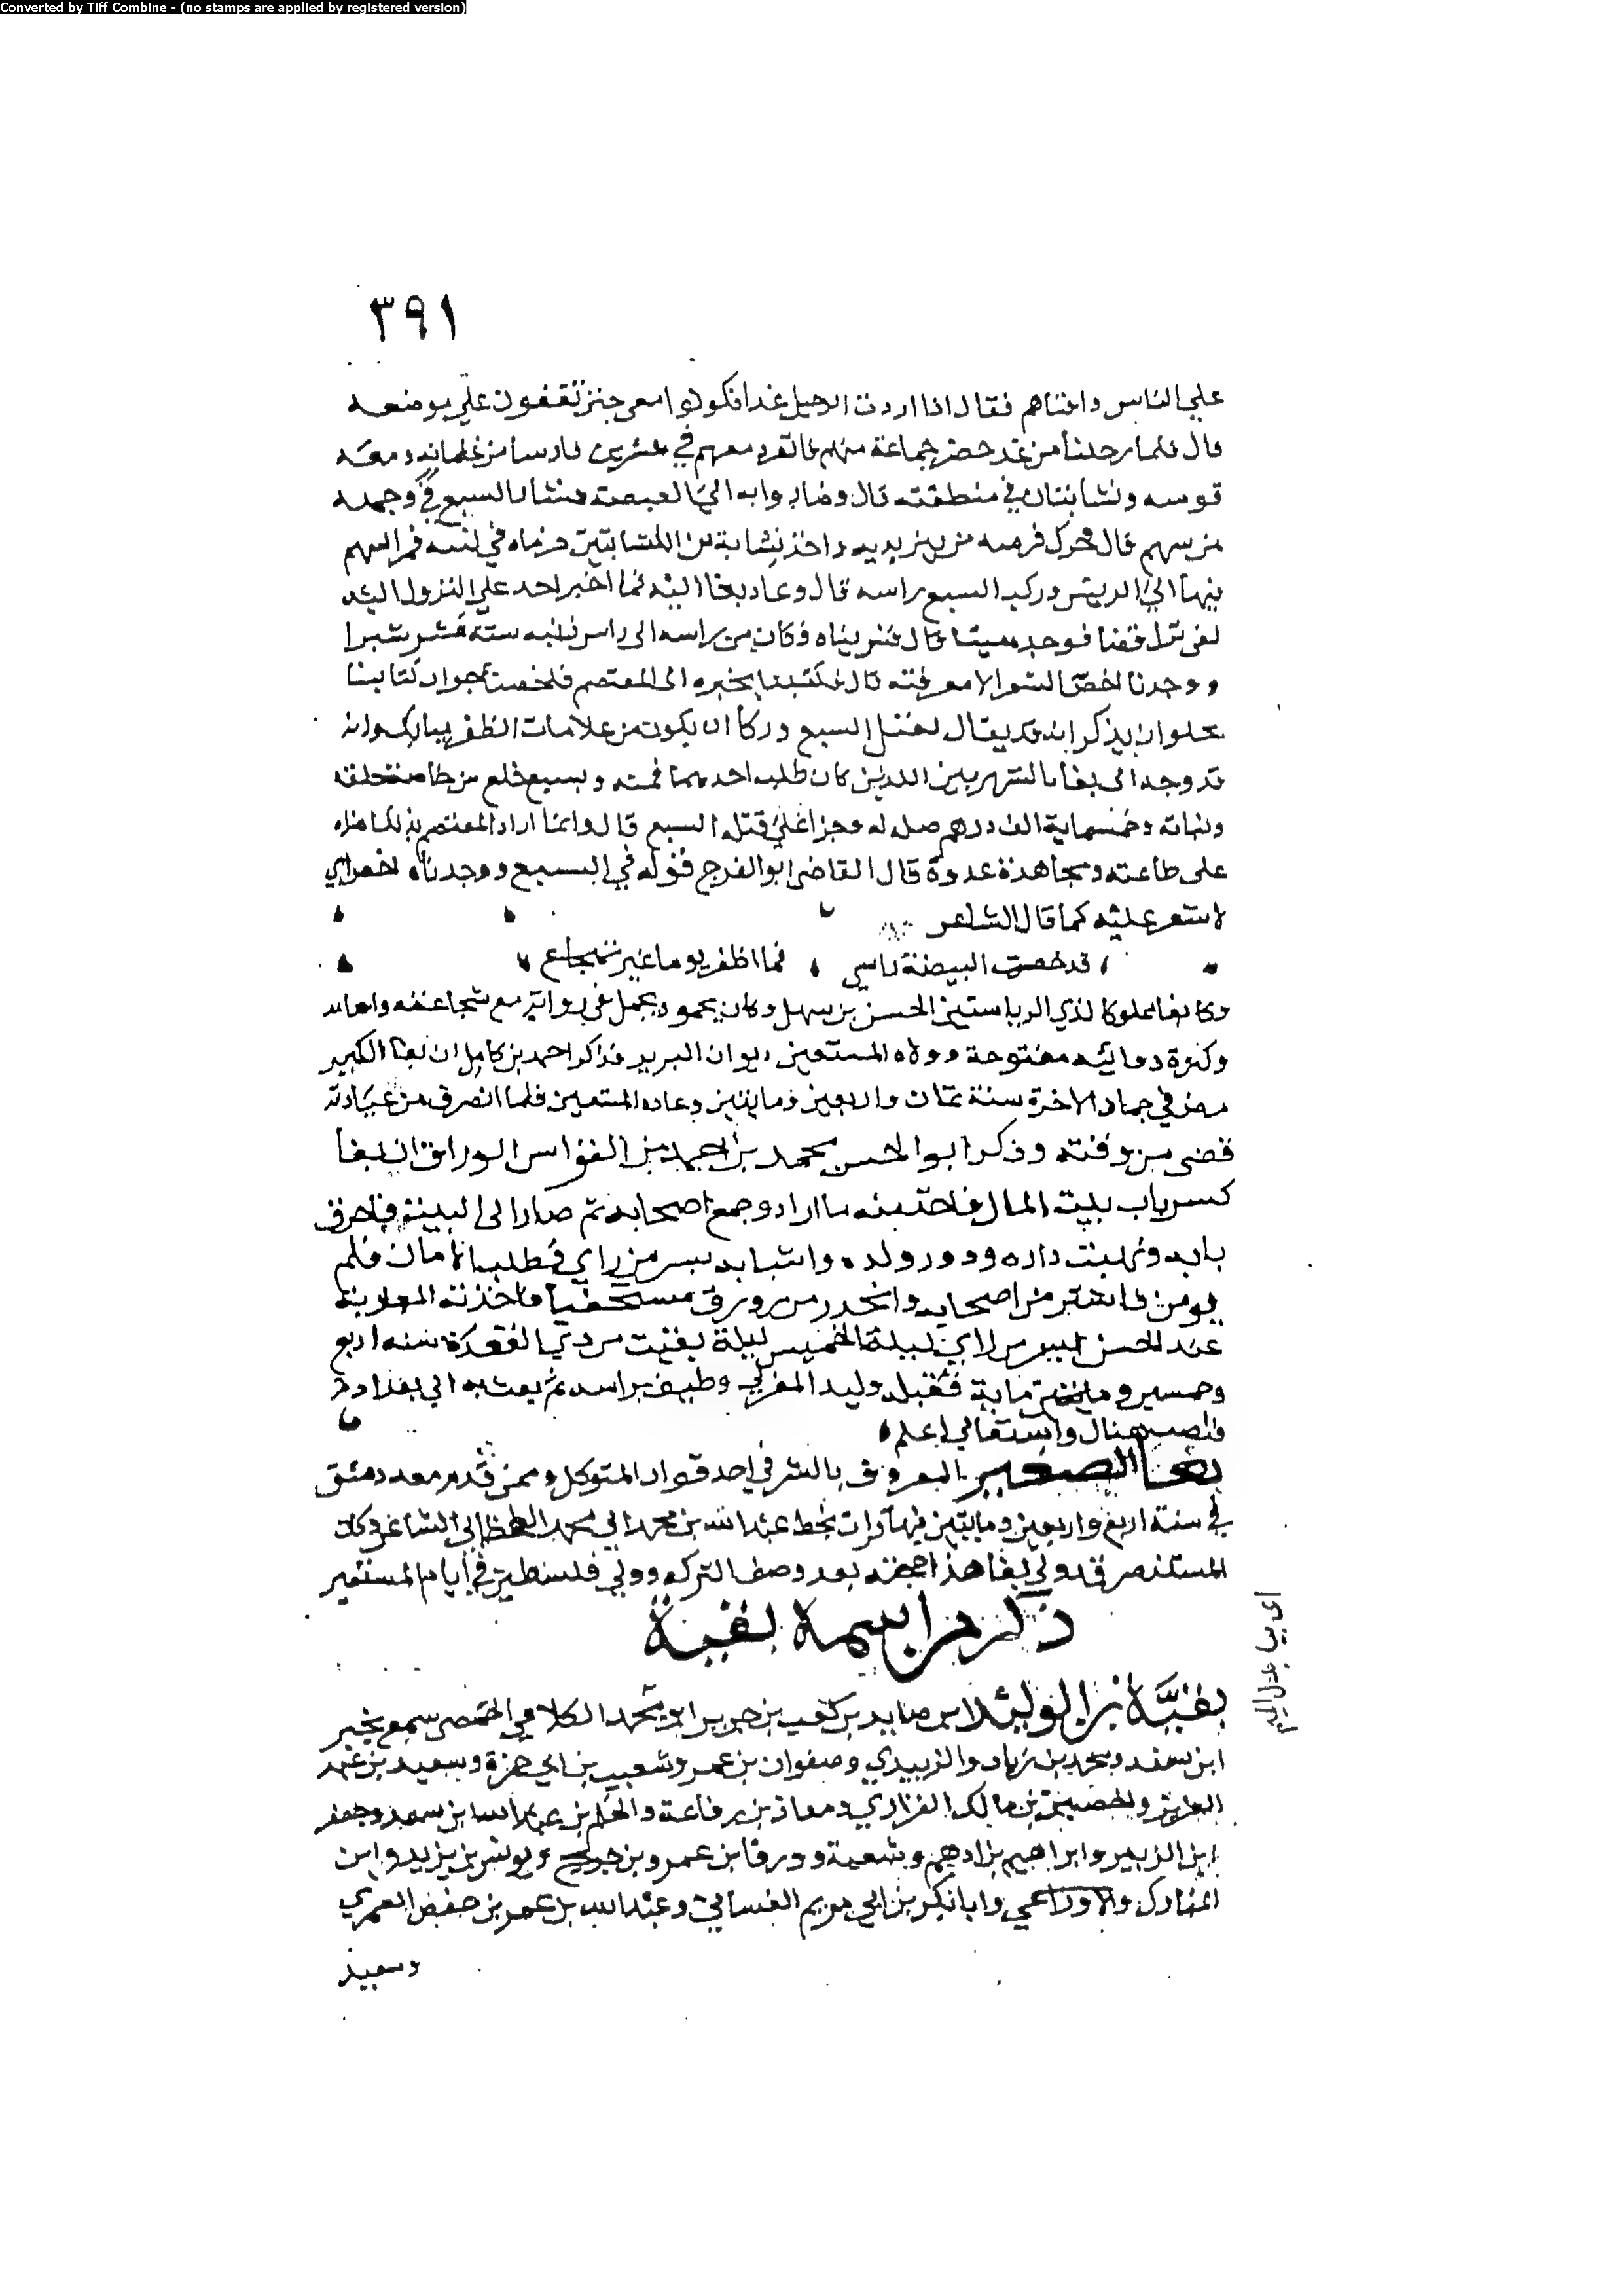 Converted by Tiff Combine - (no stamps are applied by registered version)
٣٩١
علي الناس وافناهم فقال اذا اردت الرحيل غدا فكونوا معي حتى تقفون علي موضعه
قال فلما رحلنا من غد حضر جماعة منهم فانفرد معهم في عشرين فارسا من غلمانه ومعه
قوسه ونشابتان في منطقته قال وصاروا به الي الغيضة فثار السبع في وجهه
من بينهم قال فحرك فرسه من بين يديه واخذ نشابة من النشابتين فرماه في لبته فمر السهم
فيها الي الريش وركب السبع راسه قال وعاد بغا اليه فما اخبر احد علي النزول اليه
فوجد ميتا قال فشبرناه فكان من راسه الى راس ذنبه ستة عشر شبرا
ووجدنا احص الشعر الا معرفته قال فكتبنا بخبره الى المعتصم فلحقنا جواب كتابنا
بحلوان يذكر انه قد يقال لقتل السبع ورجا ان يكون من علامات الظفر ببابك وانه
قد وجه الى بغا وبسبع خلع من خاصة خلعه
وخمسماية الف درهم صلة له وجزاء على قتل السبع قال وانما اراد المعتصم بذلك
على طاعته ومجاهدة عدوه قال القاضى ابو الفرج قوله في السبع ووجدناه احص اي
لا شعر عليه كما قال الشاعر
قد حصت البيضة راسي فما اطعم يوما غير تهجاع
وكان بغا مملوكا لذي الرياستين الحسن بن سهل وكان يحمق ويجهل في رواية مع شجاعته واقدامه
وكثرة وقائعه مفتوحة وولاه المستعين ديوان البريد فذكر احمد بن كامل ان بغا الكبير
مرض في جماد الاخرة سنة ثمان واربعين ومايتين وعاده المستعين فلما انصرف من عيادته
قضى من وقته وذكر ابو الحسن محمد بن احمد بن القواس الوراق ان بغا
كسر باب بيت المال فاخذ منه ما اراد وجمع اصحابه ثم صار الى السن فاحرق
بابه ونهبت داره ودور ولده واشبابه بسر من راي فطلب الامان فلم
يومن فاستتر من اصحابه وانحدر من زورق مستخفيا فاخذته المغاربة
عند الجسر بسر من راي ليلة الخميس ليلة بقيت من ذي القعدة سنة اربع
وخمسين ومايتين فقتله وليد المغربي وطيف براسه ثم بعث به الي بغداد
فنصب هنال والله تعالي اعلم
بغا الصغير المعروف بالشرابي احد قواد المتوكل وممن قدم معه دمشق
في سنة اربع واربعين ومايتين فيما قرات بخط عبد الله بن محمد ابي محمد الخطابي الشاعر وكان
المستنصر قد ولي بغا هذا بعد وصيف التركي وولي فلسطين في ايام المستعين
ذكر من اسمه بقية
بقيَّة بن الوليد ابن صايد بن كعب بن حريز ابو يحمد الكلاعي الحمصي سمع بحير
ابن سعد ومحمد بن زياد والزبيدي وصفوان بن عمرو وشعيب بن ابي حمزة وسعيد بن عبد
العزيز والحصين بن مالك الفزاري ومعاذ بن رفاعة والحكم بن عبد الله ابن سعد وجعفر
ابن الزبير وابراهيم بن ادهم وشعبة وورقا بن عمر وبن جريج ويونس بن يزيد وابن
المبارك والاوزاعي وابا بكر بن ابي مريم الغساني وعبد الله بن عمر بن حفص العمري
وسعيد